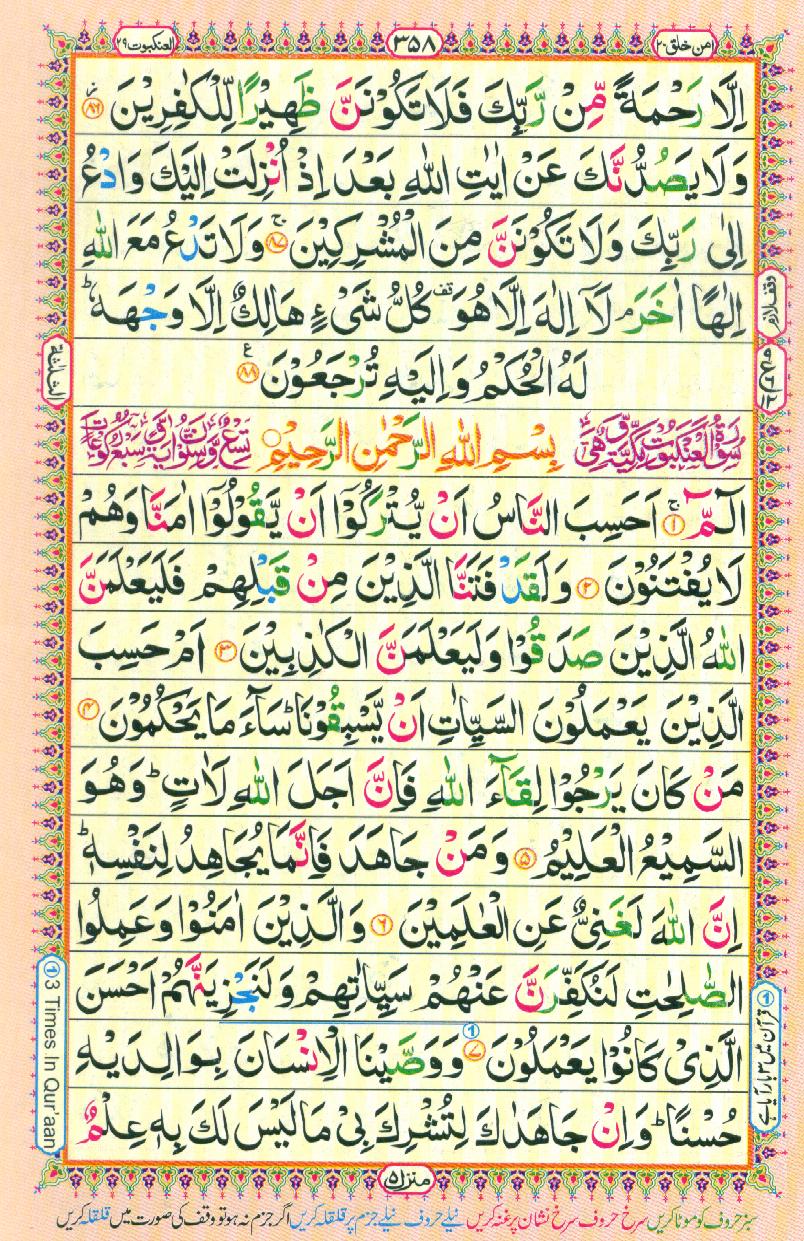 امن خلق ٢٠
٣٥٨
العنكبوت ٢٩
اِلَّا رَحْمَةً مِّنْ رَّبِّكَ فَلَا تَكُوْنَنَّ ظَهِيْرًا لِّلْكٰفِرِيْنَ ﴿٨٦﴾
وَلَا يَصُدُّنَّكَ عَنْ اٰيٰتِ اللّٰهِ بَعْدَ اِذْ اُنْزِلَتْ اِلَيْكَ وَادْعُ
اِلٰى رَبِّكَ وَلَا تَكُوْنَنَّ مِنَ الْمُشْرِكِيْنَ ﴿٨٧﴾ وَلَا تَدْعُ مَعَ اللّٰهِ
اِلٰهًا اٰخَرَ ۘ لَآ اِلٰهَ اِلَّا هُوَ قف كُلُّ شَيْءٍ هَالِكٌ اِلَّا وَجْهَهٗ ؕ
لَهُ الْحُكْمُ وَاِلَيْهِ تُرْجَعُوْنَ ﴿٨٨﴾
وقف لازم
الثلثة
سُوْرَةُ الْعَنْكَبُوْتِ مَكِّيَّةٌ وَّهِيَ بِسْمِ اللّٰهِ الرَّحْمٰنِ الرَّحِيْمِ تِسْعٌ وَّسِتُّوْنَ اٰيَةً وَّسَبْعُ رُكُوْعَاتٍ
الٓمّٓ ﴿١﴾ اَحَسِبَ النَّاسُ اَنْ يُّتْرَكُوْٓا اَنْ يَّقُوْلُوْٓا اٰمَنَّا وَهُمْ
لَا يُفْتَنُوْنَ ﴿٢﴾ وَلَقَدْ فَتَنَّا الَّذِيْنَ مِنْ قَبْلِهِمْ فَلَيَعْلَمَنَّ
اللّٰهُ الَّذِيْنَ صَدَقُوْا وَلَيَعْلَمَنَّ الْكٰذِبِيْنَ ﴿٣﴾ اَمْ حَسِبَ
الَّذِيْنَ يَعْمَلُوْنَ السَّيِّاٰتِ اَنْ يَّسْبِقُوْنَا ؕ سَآءَ مَا يَحْكُمُوْنَ ﴿٤﴾
مَنْ كَانَ يَرْجُوْا لِقَآءَ اللّٰهِ فَاِنَّ اَجَلَ اللّٰهِ لَاٰتٍ ؕ وَهُوَ
السَّمِيْعُ الْعَلِيْمُ ﴿٥﴾ وَمَنْ جَاهَدَ فَاِنَّمَا يُجَاهِدُ لِنَفْسِهٖ ؕ
اِنَّ اللّٰهَ لَغَنِيٌّ عَنِ الْعٰلَمِيْنَ ﴿٦﴾ وَالَّذِيْنَ اٰمَنُوْا وَعَمِلُوا
الصّٰلِحٰتِ لَنُكَفِّرَنَّ عَنْهُمْ سَيِّاٰتِهِمْ وَلَنَجْزِيَنَّهُمْ اَحْسَنَ
الَّذِيْ كَانُوْا يَعْمَلُوْنَ ﴿٧﴾ وَوَصَّيْنَا الْاِنْسَانَ بِوَالِدَيْهِ
حُسْنًا ؕ وَاِنْ جَاهَدٰكَ لِتُشْرِكَ بِيْ مَا لَيْسَ لَكَ بِهٖ عِلْمٌ
① قرآن میں ۳ بار آیا ہے
① 3 Times In Qur'aan
منزل ٥
سبز حروف کو موٹا کریں سرخ حروف سرخ نشان پر غنہ کریں نیلے حروف نیلے جزم پر قلقلہ کریں اگر جزم نہ ہو تو وقف کی صورت میں قلقلہ کریں